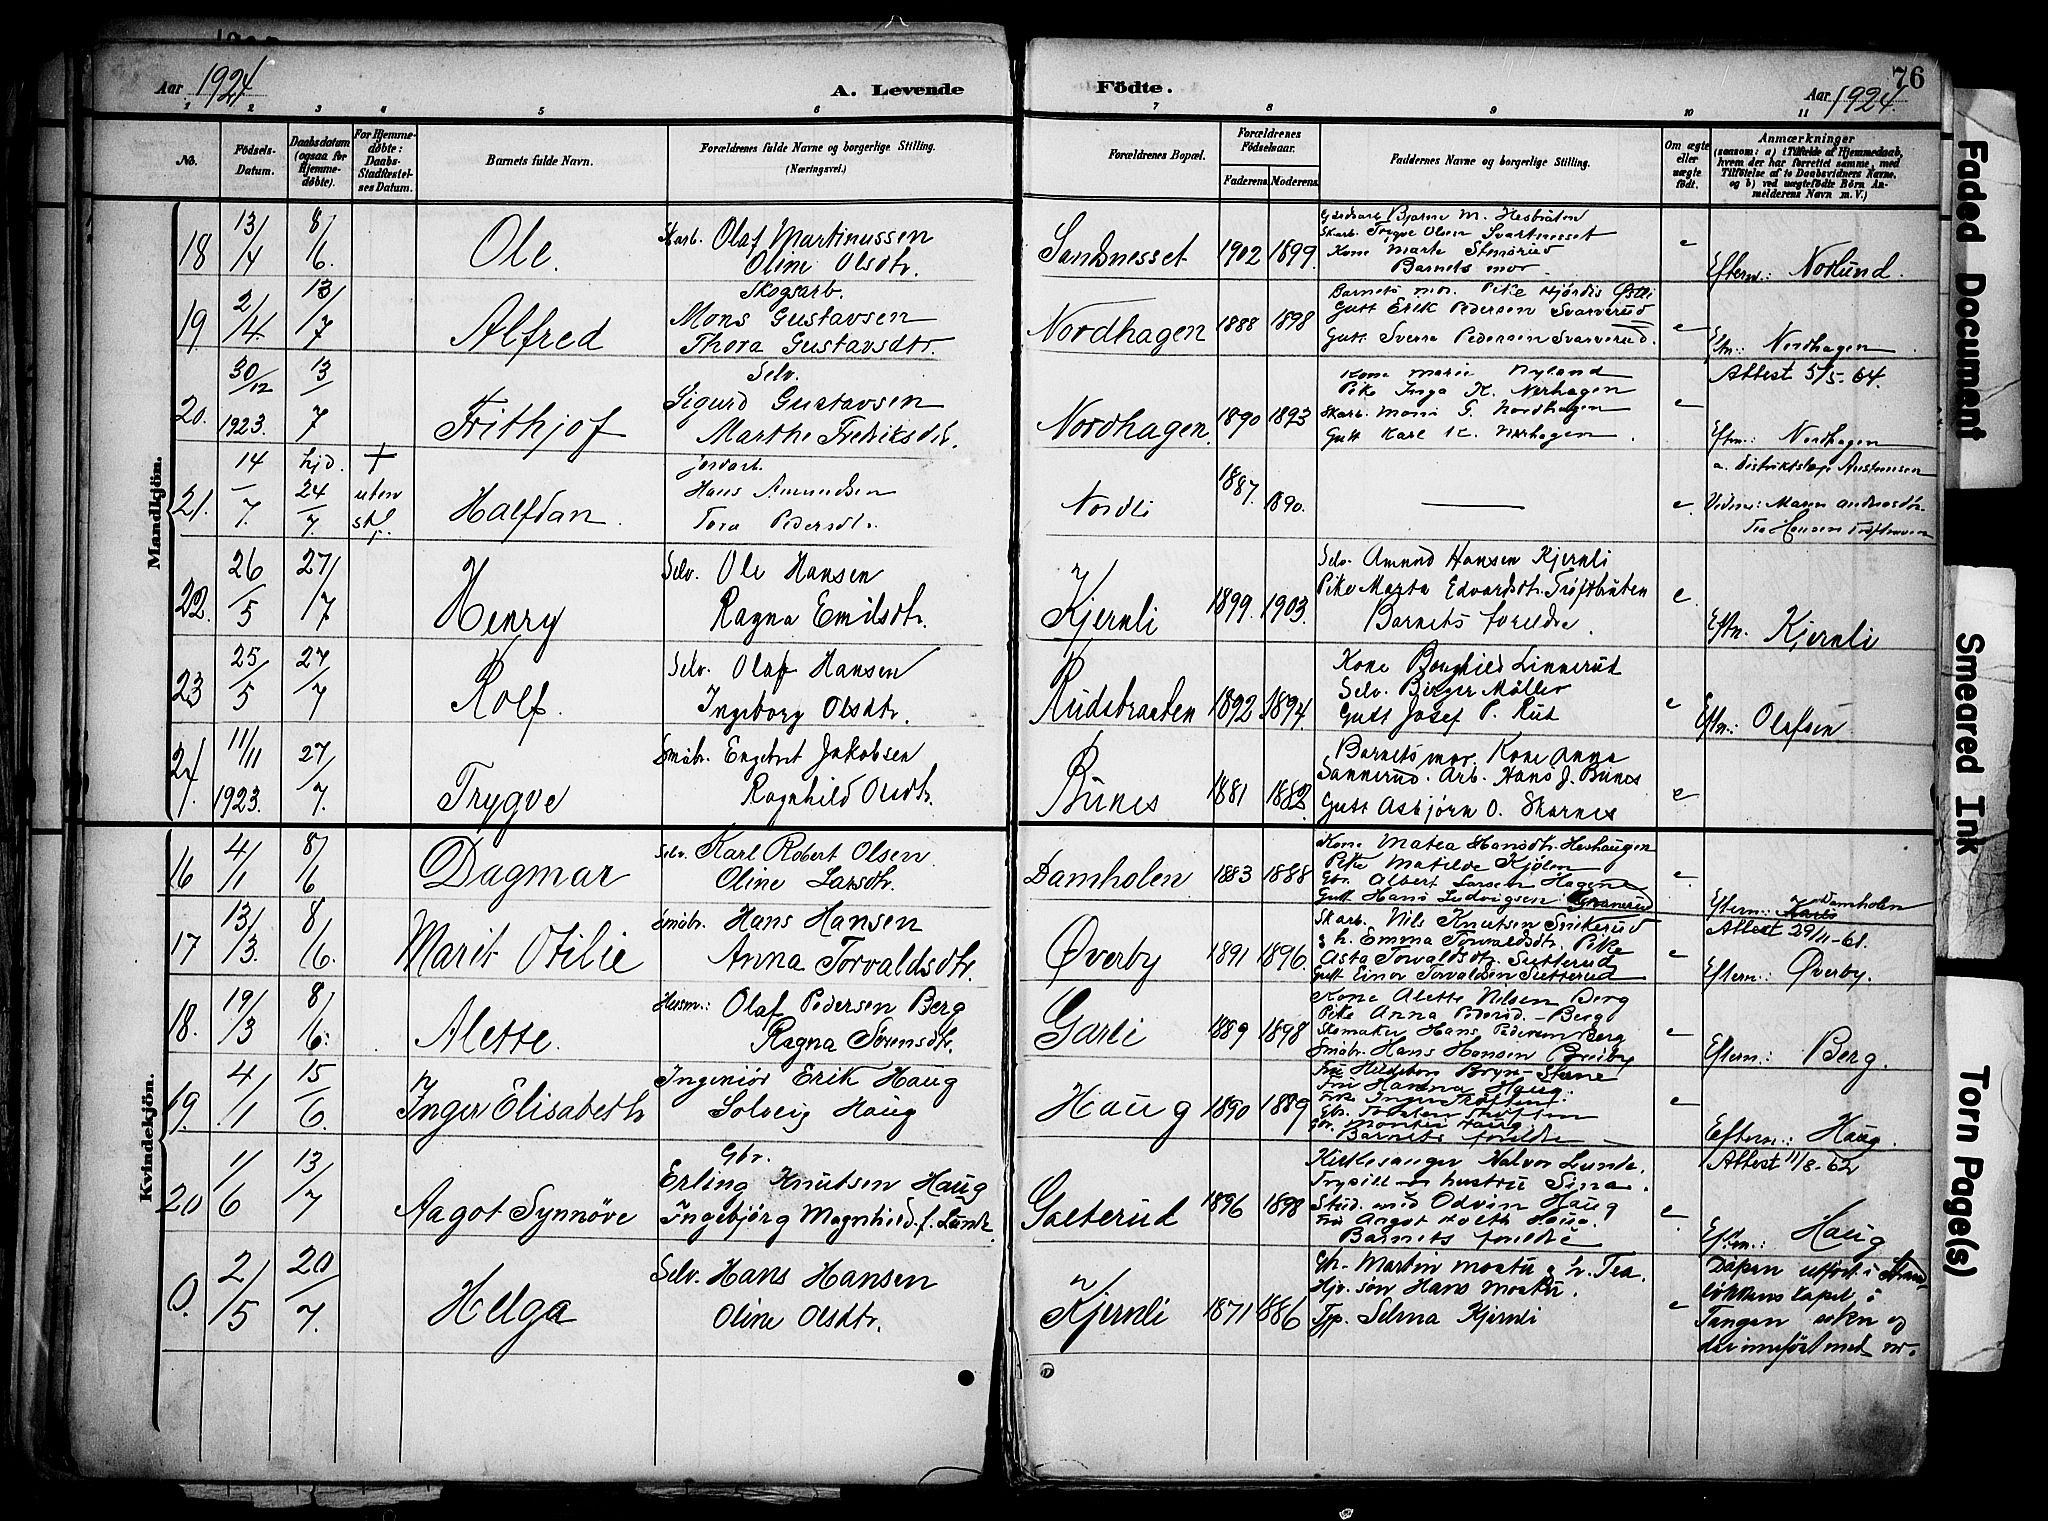 Aar 1924
A. Levende
Födte.
76
Aar 1924.
1 2 3 4 5 6 7 8 9 10 11
No.
Födsels-Datum.
Daabsdatum (ogsaa for Hjemmedøbte).
For Hjemmedøbte: Daabs-Stadfæstelses Datum.
Barnets fulde Navn.
Forældrenes fulde Navne og borgerlige Stilling. (Næringsvei.)
Forældrenes Bopæl.
Forældrenes Födselsaar.
Faderens. Moderens.
Faddernes Navne og borgerlige Stilling.
Om ægte eller uægte födt.
Anmærkninger
(saasom: a) i Tilfælde af Hjemmedaab, hvem der har forrettet samme, med Tilföielse af to Daabsvidners Navne. og b) ved uægtefödte Börn Anmelderens Navn m. V.)
Mandkjön.
18 13/4 8/6 Ole.
Skarb. Olaf Martinussen
Oline Olsdtr.
Sandnesset 1902 1899
Bjarne M. Hesbråten
Skarb. Trygve Olsen Svartnesset
Kone Marte Stensrud
Barnets mor.
e
Eftern.: Norlund.
19 2/4 13/7 Alfred
Skogsarb.
Mons Gustavsen
Thora Gustavsdtr.
Nordhagen 1888 1898
Barnets mor. Pike Hjördis Østli
Gutt Erik Pedersen Svarverud
Gutt Sverre Pedersen Svarverud.
e
Eftn.: Nordhagen
20. 30/12 1923. 13/7 Frithjof
Selv.
Sigurd Gustavsen
Marthe Fredriksdtr.
Nordhagen. 1890 1893
Kone Marie Nyland
Pike Inga K. Nerhagen
Skarb. Mons G. Nordhagen
Gutt Karl K. Nerhagen.
e
Attest 5/5-64.
Eftn.: Nordhagen
21. 14/7. hjd. 24/7. + uten stf. Halfdan.
jordarb.
Hans Amundsen
Tora Pedersdtr.
Nordli 1887. 1890.
e.
a. Distriktslæge Austensen
Vidner: Maren Andreasdtr.
Tea Hansen
22. 26/5 27/7 Henry
Selv. Ole Hansen
Ragna Emilsdtr.
Kjernli 1899. 1903.
Selv. Amund Hansen Kjernli
Pike Marta Edvardsdtr. Tröftbråten
Barnets foreldre.
e.
Eftn. Kjernli
23 25/5 27/7 Rolf.
Selv. Olaf Hansen
Ingeborg Olsdtr.
Rudsbraaten 1892 1894
Kone Borghild Linnerud
Selv. Birger Möller
Gutt Josef P. Rud
e
Eftn.: Olafsen
24. 11/11 1923. 27/7. Trygve
Småbr. Engebret Jakobsen
Ragnhild Olsdtr.
Bunes 1881 1882
Barnets mor. Kone Anna
Sannerud. Arb. Hans J. Bunes
Gutt Asbjörn O. Skarnes
e
Kvindekjön.
16 4/1 8/6 Dagmar
Selv. Karl Robert Olsen
Oline Larsdtr.
Damholen 1883 1888
Kone Matea Hansdtr. Heshaugen
Pike Matilde Kjölen
Gbr. Albert Larsen Hagen
Gutt Hans Ludvigsen Granerud
e.
Eftern: Karls Damholen
17 13/3. 8/6. Marit Otilie
Småbr. Hans Hansen
Anna Torvaldsdtr.
Øverby 1891 1896
Skarb. Nils Knutsen Snikerud
& h. Emma Torvaldsdtr. Pike
Asta Torvaldsdtr. Sætterud
Gutt Einar Torvaldsen Sætterud
e
Attest 29/11-61.
Eftern.: Øverby.
18. 19/3 8/6. Alette.
Husm.: Olaf Pedersen Berg
Ragna Sörensdtr.
Garli 1889 1898
Kone Alette Nilsen Berg
Pike Anna Pedersd. Berg
Skomaker Hans Pedersen Berg
Småbr. Hans Hansen Breiby
e
Eftern.: Berg.
19. 4/1 15/6. Inger Elisabeth
Ingeniör Erik Haug
Solveig Haug
Haug 1890 1889
Fru Hildebor Bryn-Stene
Fru Hanna Haug
Barnets foreldre
e
Eftern.: Haug.
20 1/6 13/7 Aagot Synnöve
Gbr.
Erling Knutsen Haug
Ingebjörg Magnhild f. Lunde
Galterud 1896 1898
Kirkesanger Halvor Lunde.
Trysill og hustru Sina.
Stud. med Odvin Haug
Fru Aagot Holth Haug.
Barnets foreldre
e.
Attest 11/8-62
Eftn.: Haug
0. 2/5 20/7. Helga
Selv. Hans Hansen
Oline Olsdtr.
Kjernli 1871 1886
Gbr. Martin Mostu & h. Tea.
Hjv. sön Hans Mostu.
Tjp. Selma Kjernli
e
Dåpen utfört i Strandlökkens kapel i
Tangen sokn og
der innfört med nr.
Faded Document
Smeared Ink
Torn Page(s)